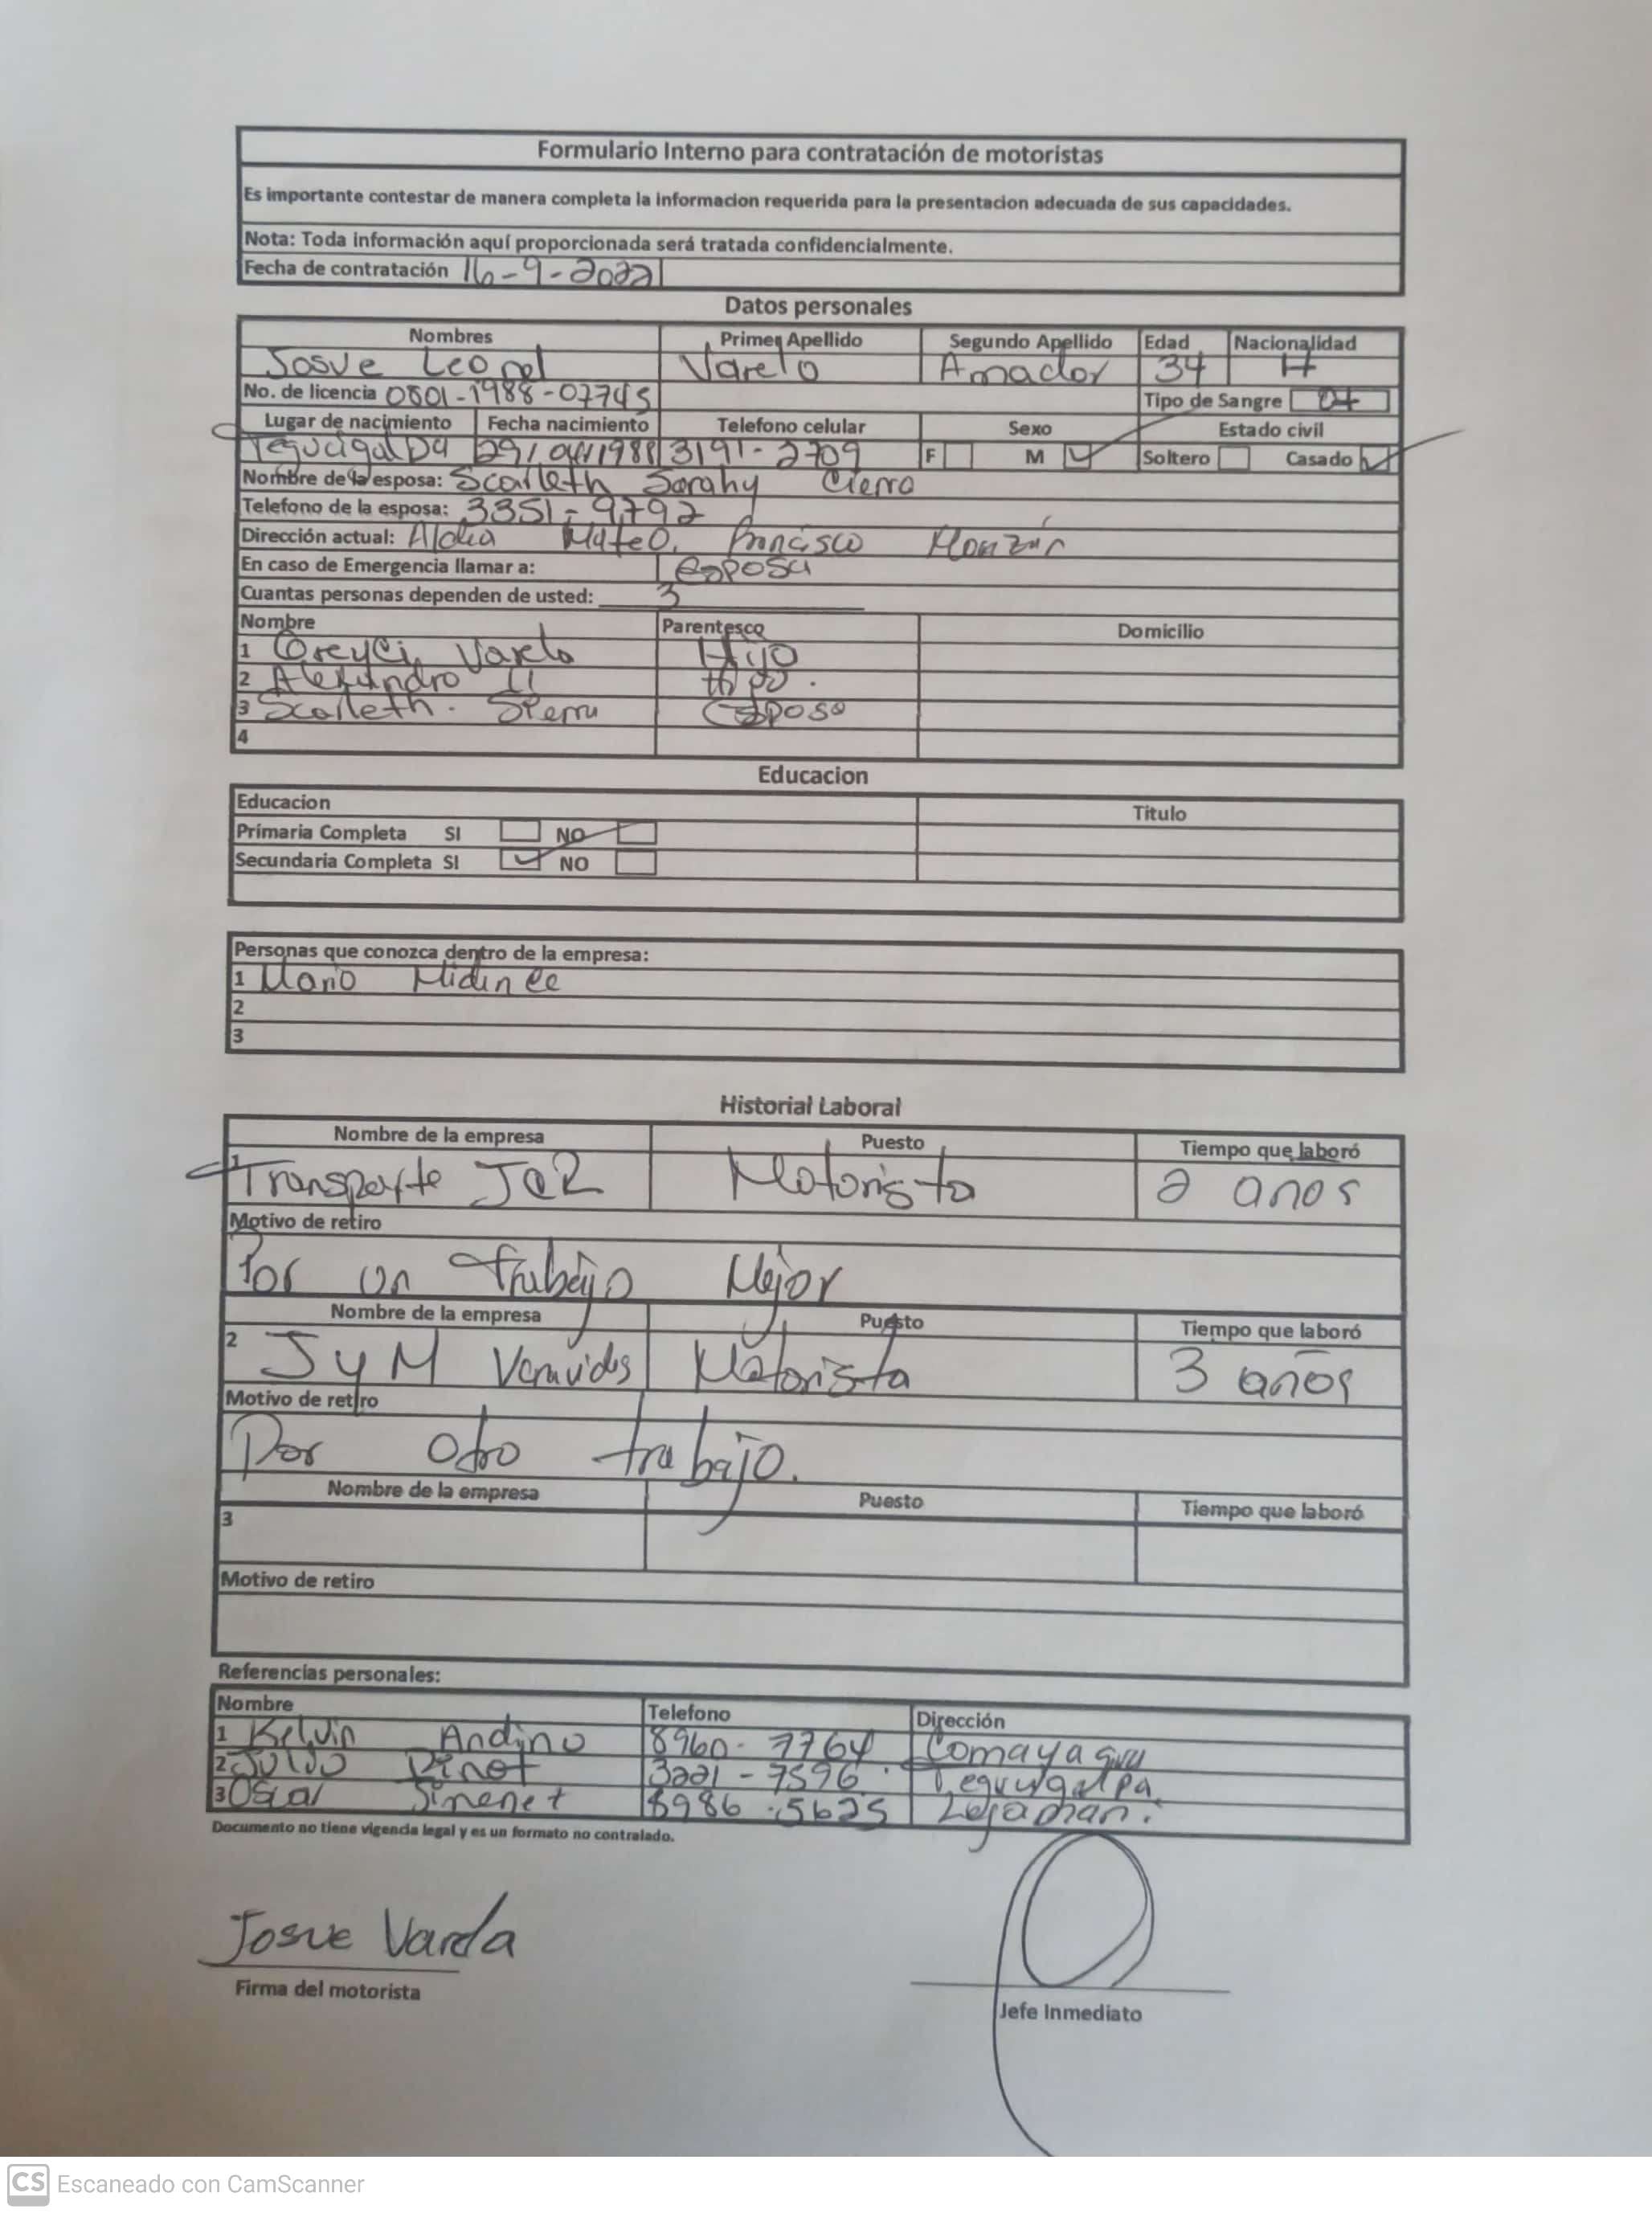 Formulario Interno para contratación de motoristas
Es importante contestar de manera completa la informacion requerida para la presentacion adecuada de sus capacidades.
Nota: Toda información aquí proporcionada será tratada confidencialmente.
Fecha de contratación 16-9-2022
Datos personales
Nombres Primer Apellido Segundo Apellido Edad Nacionalidad
Josue Leonel Varela Amador 34 H
No. de licencia 0801-1988-07745 Tipo de Sangre O+
Lugar de nacimiento Fecha nacimiento Telefono celular Sexo Estado civil
Tegucigalpa 29/04/1988 3191-2709 F M Soltero Casado
Nombre de la esposa: Scarleth Sarahy Cierra
Telefono de la esposa: 3351-9792
Dirección actual: Aldea Mateo. Francisco Morazán
En caso de Emergencia llamar a: esposa
Cuantas personas dependen de usted: 3
Nombre Parentesco Domicilio
1 Varela Hijo
2 Alexandro 11 Hijo.
3 Scarleth. Sierra Esposa
4
Educacion
Educacion Titulo
Primaria Completa SI NO
Secundaria Completa SI NO
Personas que conozca dentro de la empresa:
1 Mario
2
3
Historial Laboral
Nombre de la empresa Puesto Tiempo que laboró
1 Transporte Motorista 2 anos
Motivo de retiro
Por un trabajo Mejor
Nombre de la empresa Puesto Tiempo que laboró
2 JyM Motorista 3 años
Motivo de retiro
Por otro trabajo.
Nombre de la empresa Puesto Tiempo que laboró
3
Motivo de retiro
Referencias personales:
Nombre Telefono Dirección
1 Kelvin Andino 8960-7764 Comayagua
2 3221-7596 Tegucigalpa
3 Oscar 8986-5625 Lejaman.
Documento no tiene vigencia legal y es un formato no contralado.
Josue Varela
Firma del motorista
Jefe Inmediato
CS Escaneado con CamScanner